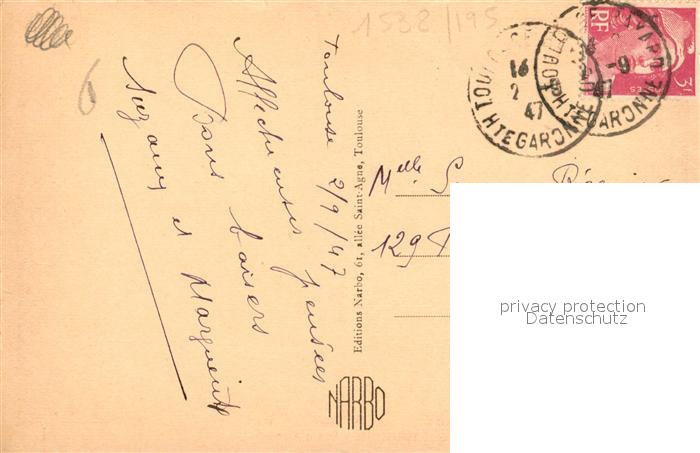 1538/195
6
Toulouse 2/9/47
Affectueuses pensées
Bons baisers
Suzany et Marguerite
Editions Narbo, 61, allée Saint-Agne, Toulouse
NARBO
Melle S
129
RF
3F
16
2 9
47
TOULOUSE
HTE GARONNE
privacy protection
Datenschutz